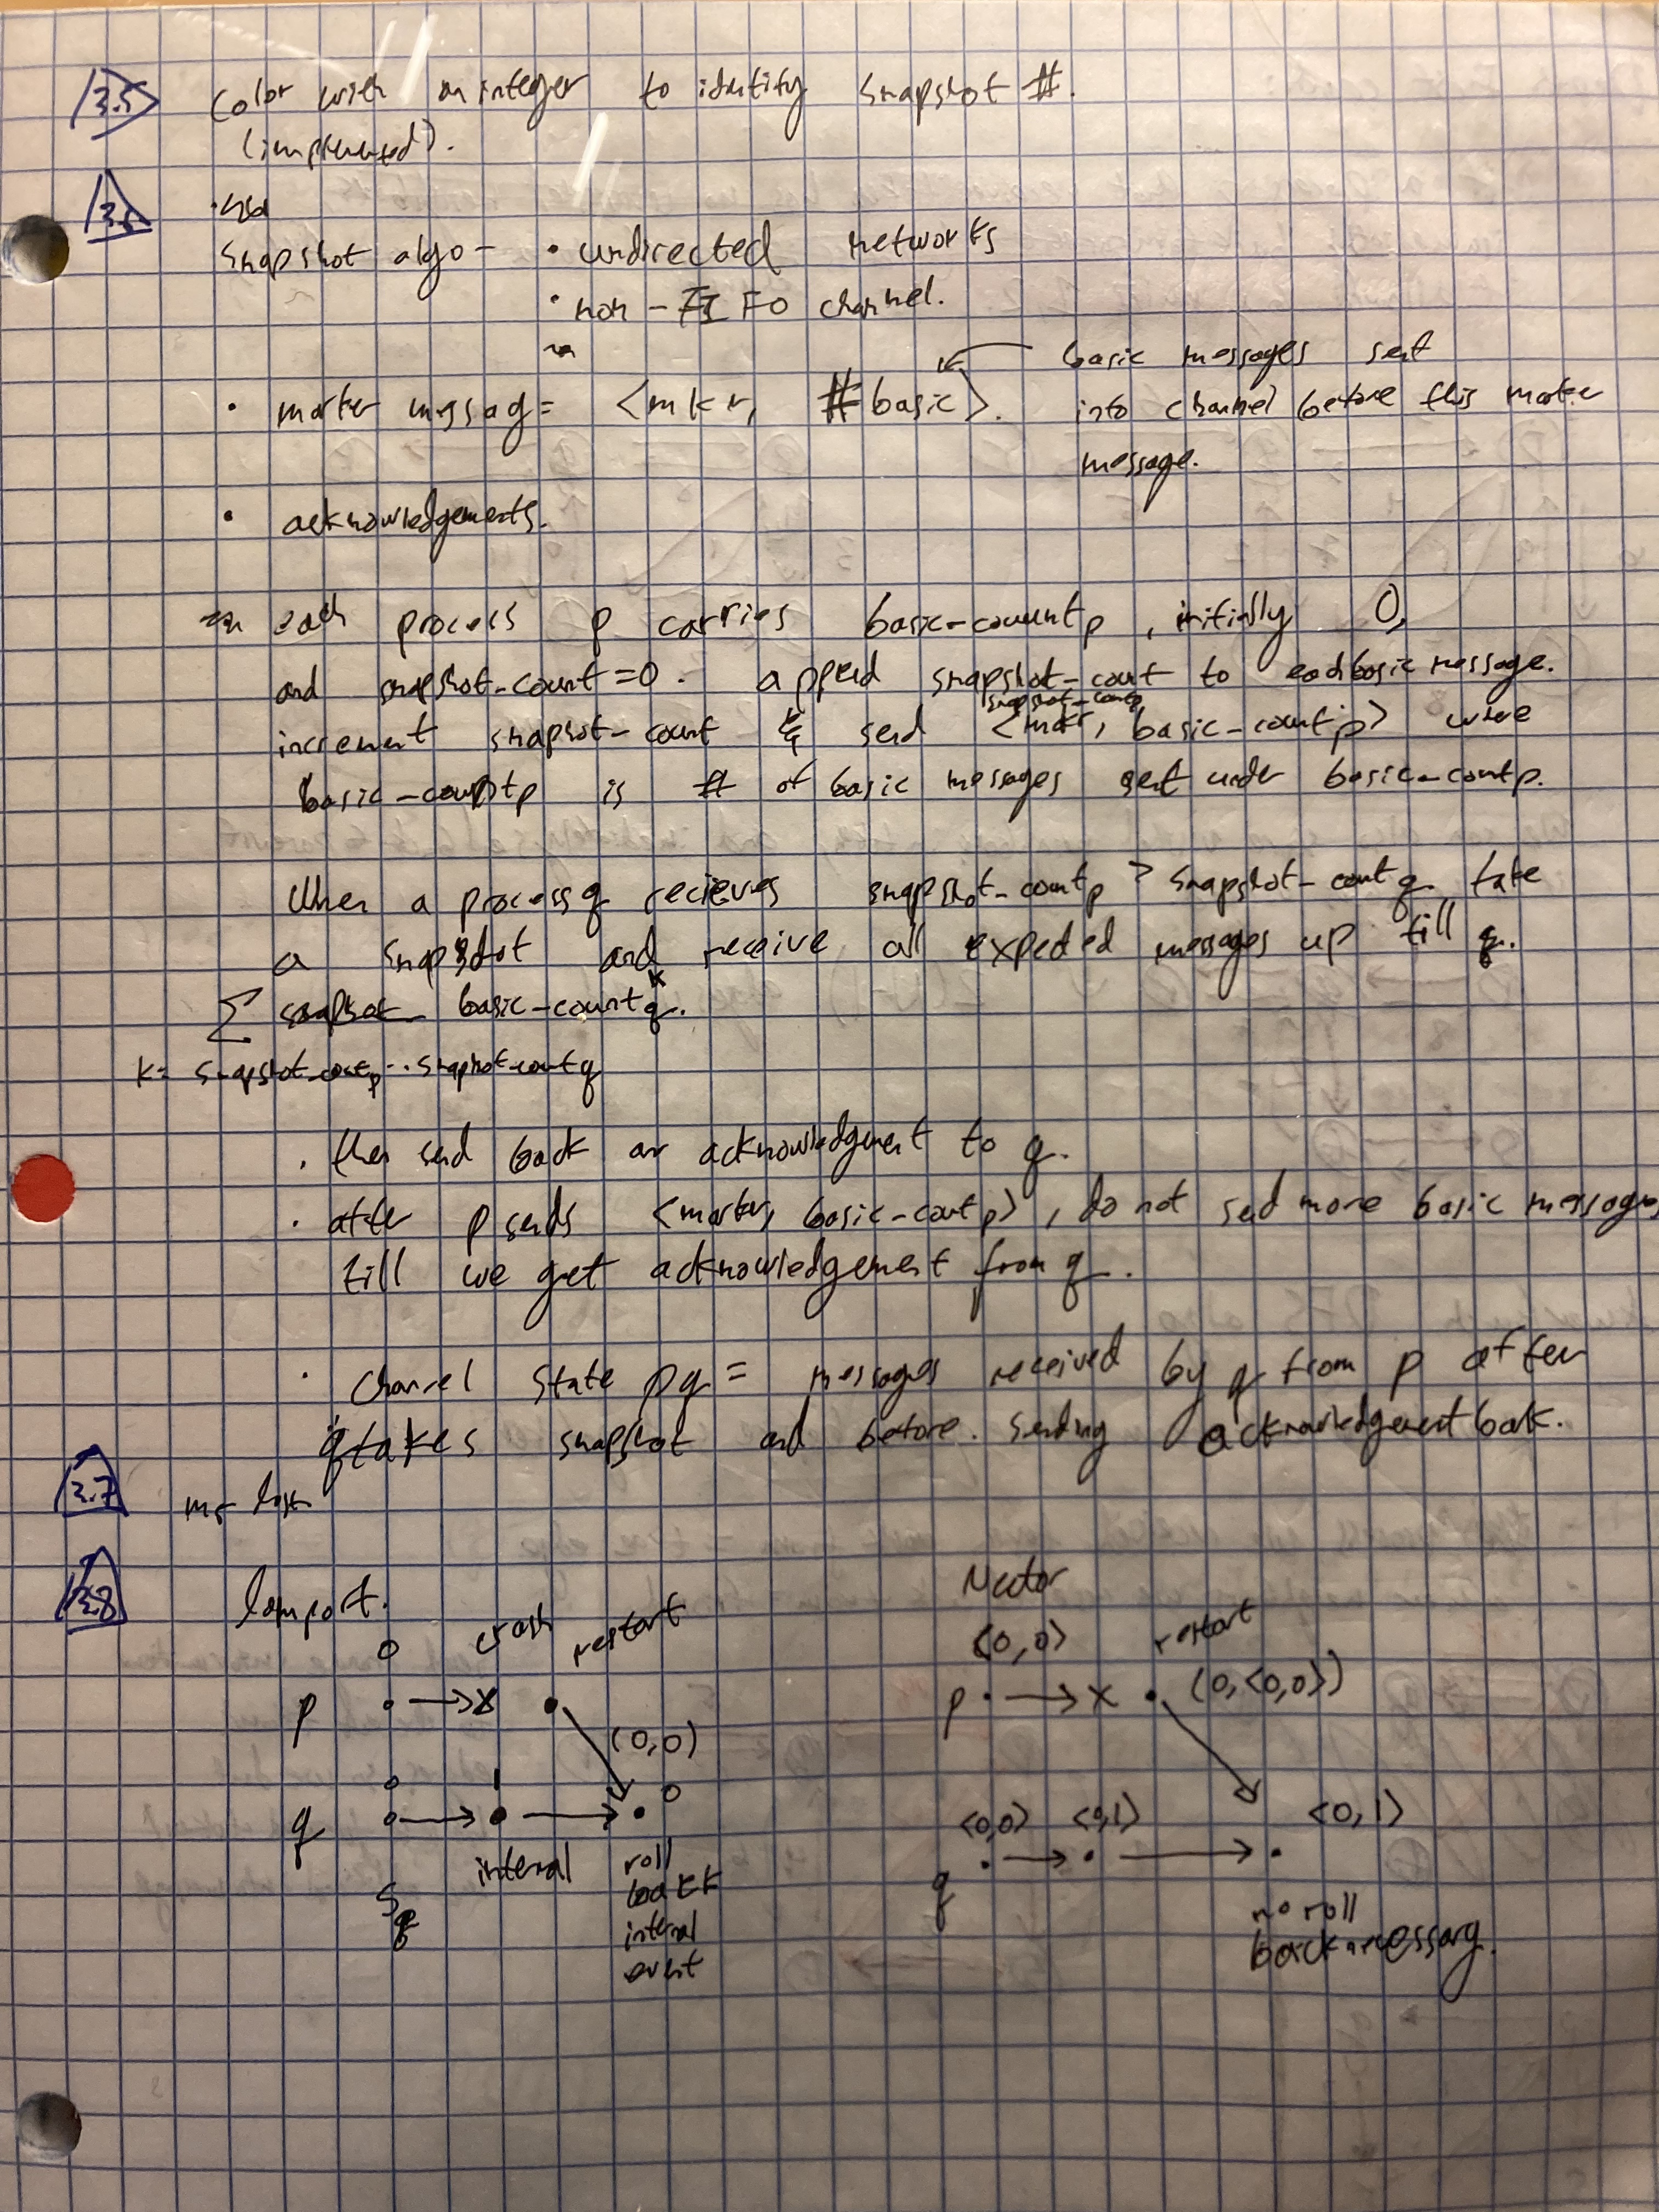 3.5
Color with an integer to identify snapshot #.
(implemented).
3.6
snapshot algo - • undirected networks
• non-FIFO channel.
• marker messag = <mkr, #basic>.
basic messages sent
into channel before this marker
message.
• acknowledgements.
each process p carries basic-count p, initially 0,
and snapshot-count = 0. append snapshot-count to each basic message.
snapshot-count
increment snapshot-count & send <mkr, basic-count p> where
basic-count p is # of basic messages sent under basic-count p.
When a process q recieves snapshot-count p > snapshot-count q take
a snapshot and receive all expected messages up till q.
Σ basic-count q k.
k = snapshot-count p .. snapshot-count q
• then send back an acknowledgment to q.
• after p sends <marker, basic-count p>, do not send more basic messages
till we get acknowledgement from q.
• Channel state pq = messages received by q from p after
q takes snapshot and before sending acknowledgement back.
3.7
3.8
Lamport.
0 crash restart
p
(0,0)
0 1 0
q
internal
Sq
roll
back
internal
event
Vector
<0,0> restart
p (0,<0,0>)
<0,0> <0,1> <0,1>
q
no roll
back necessary.